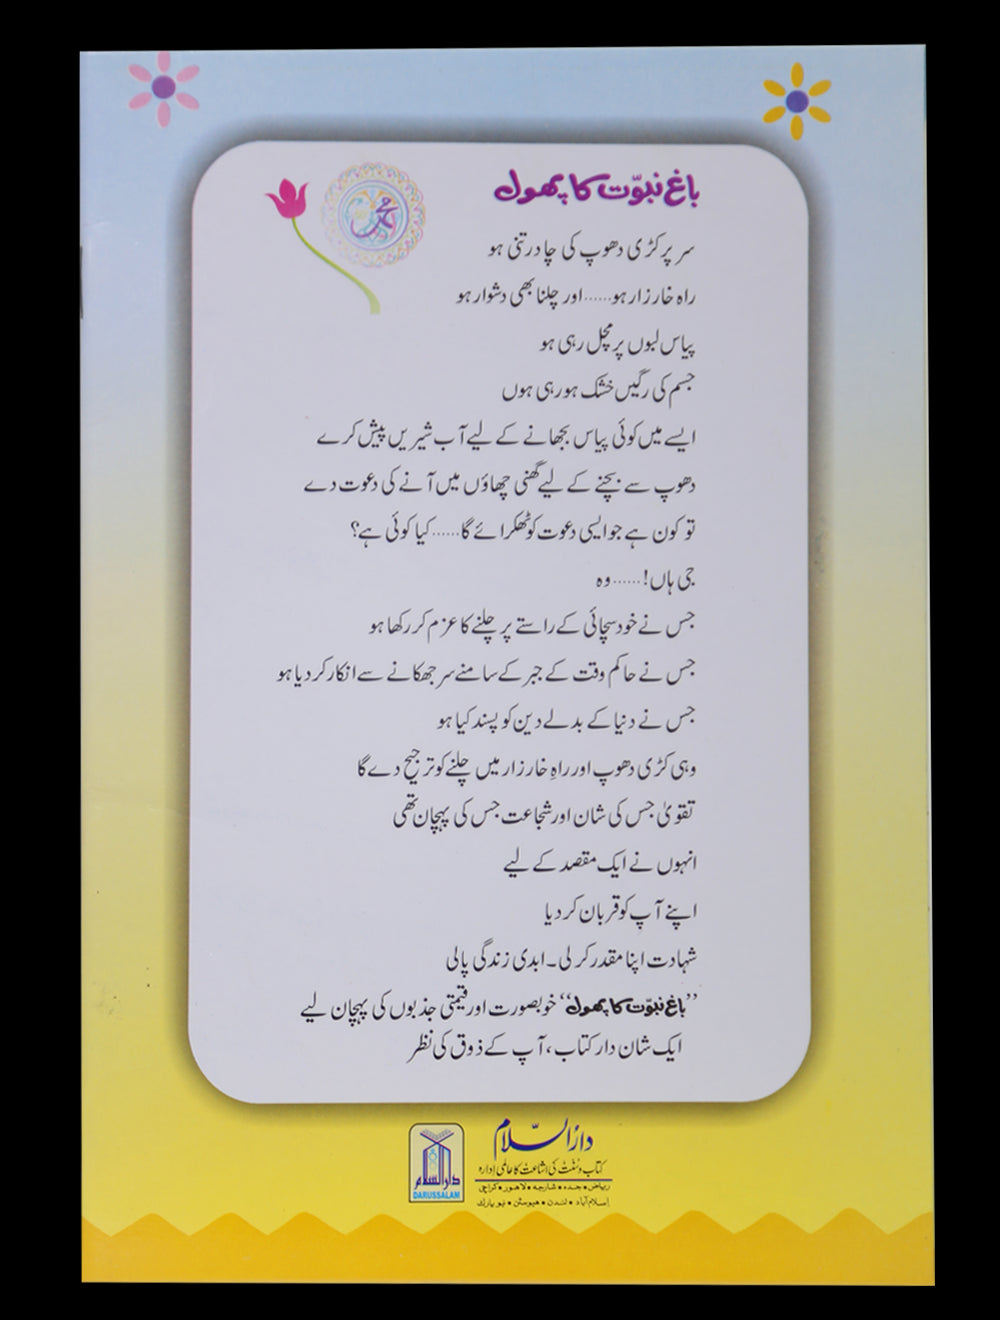 باغِ نبوّت کا پھول
محمد
سر پر کڑی دھوپ کی چادر تنی ہو
راہ خارزار ہو......اور چلنا بھی دشوار ہو
پیاس لبوں پر مچل رہی ہو
جسم کی رگیں خشک ہو رہی ہوں
ایسے میں کوئی پیاس بجھانے کے لیے آب شیریں پیش کرے
دھوپ سے بچنے کے لیے گھنی چھاؤں میں آنے کی دعوت دے
تو کون ہے جو ایسی دعوت کو ٹھکرائے گا......کیا کوئی ہے؟
جی ہاں!......وہ
جس نے خود سچائی کے راستے پر چلنے کا عزم کر رکھا ہو
جس نے حاکم وقت کے جبر کے سامنے سر جھکانے سے انکار کر دیا ہو
جس نے دنیا کے بدلے دین کو پسند کیا ہو
وہی کڑی دھوپ اور راہِ خارزار میں چلنے کو ترجیح دے گا
تقویٰ جس کی شان اور شجاعت جس کی پہچان تھی
انہوں نے ایک مقصد کے لیے
اپنے آپ کو قربان کر دیا
شہادت اپنا مقدر کر لی۔ ابدی زندگی پالی
”باغِ نبوّت کا پھول“ خوبصورت اور قیمتی جذبوں کی پہچان لیے
ایک شان دار کتاب، آپ کے ذوق کی نظر
دارُالسّلام
کتاب و سُنّت کی اشاعت کا عالمی اِدارہ
ریاض • جدہ • شارجہ • لاہور • کراچی
اِسلام آباد • لندن • ہیوسٹن • نیو یارک
دارالسلام
DARUSSALAM